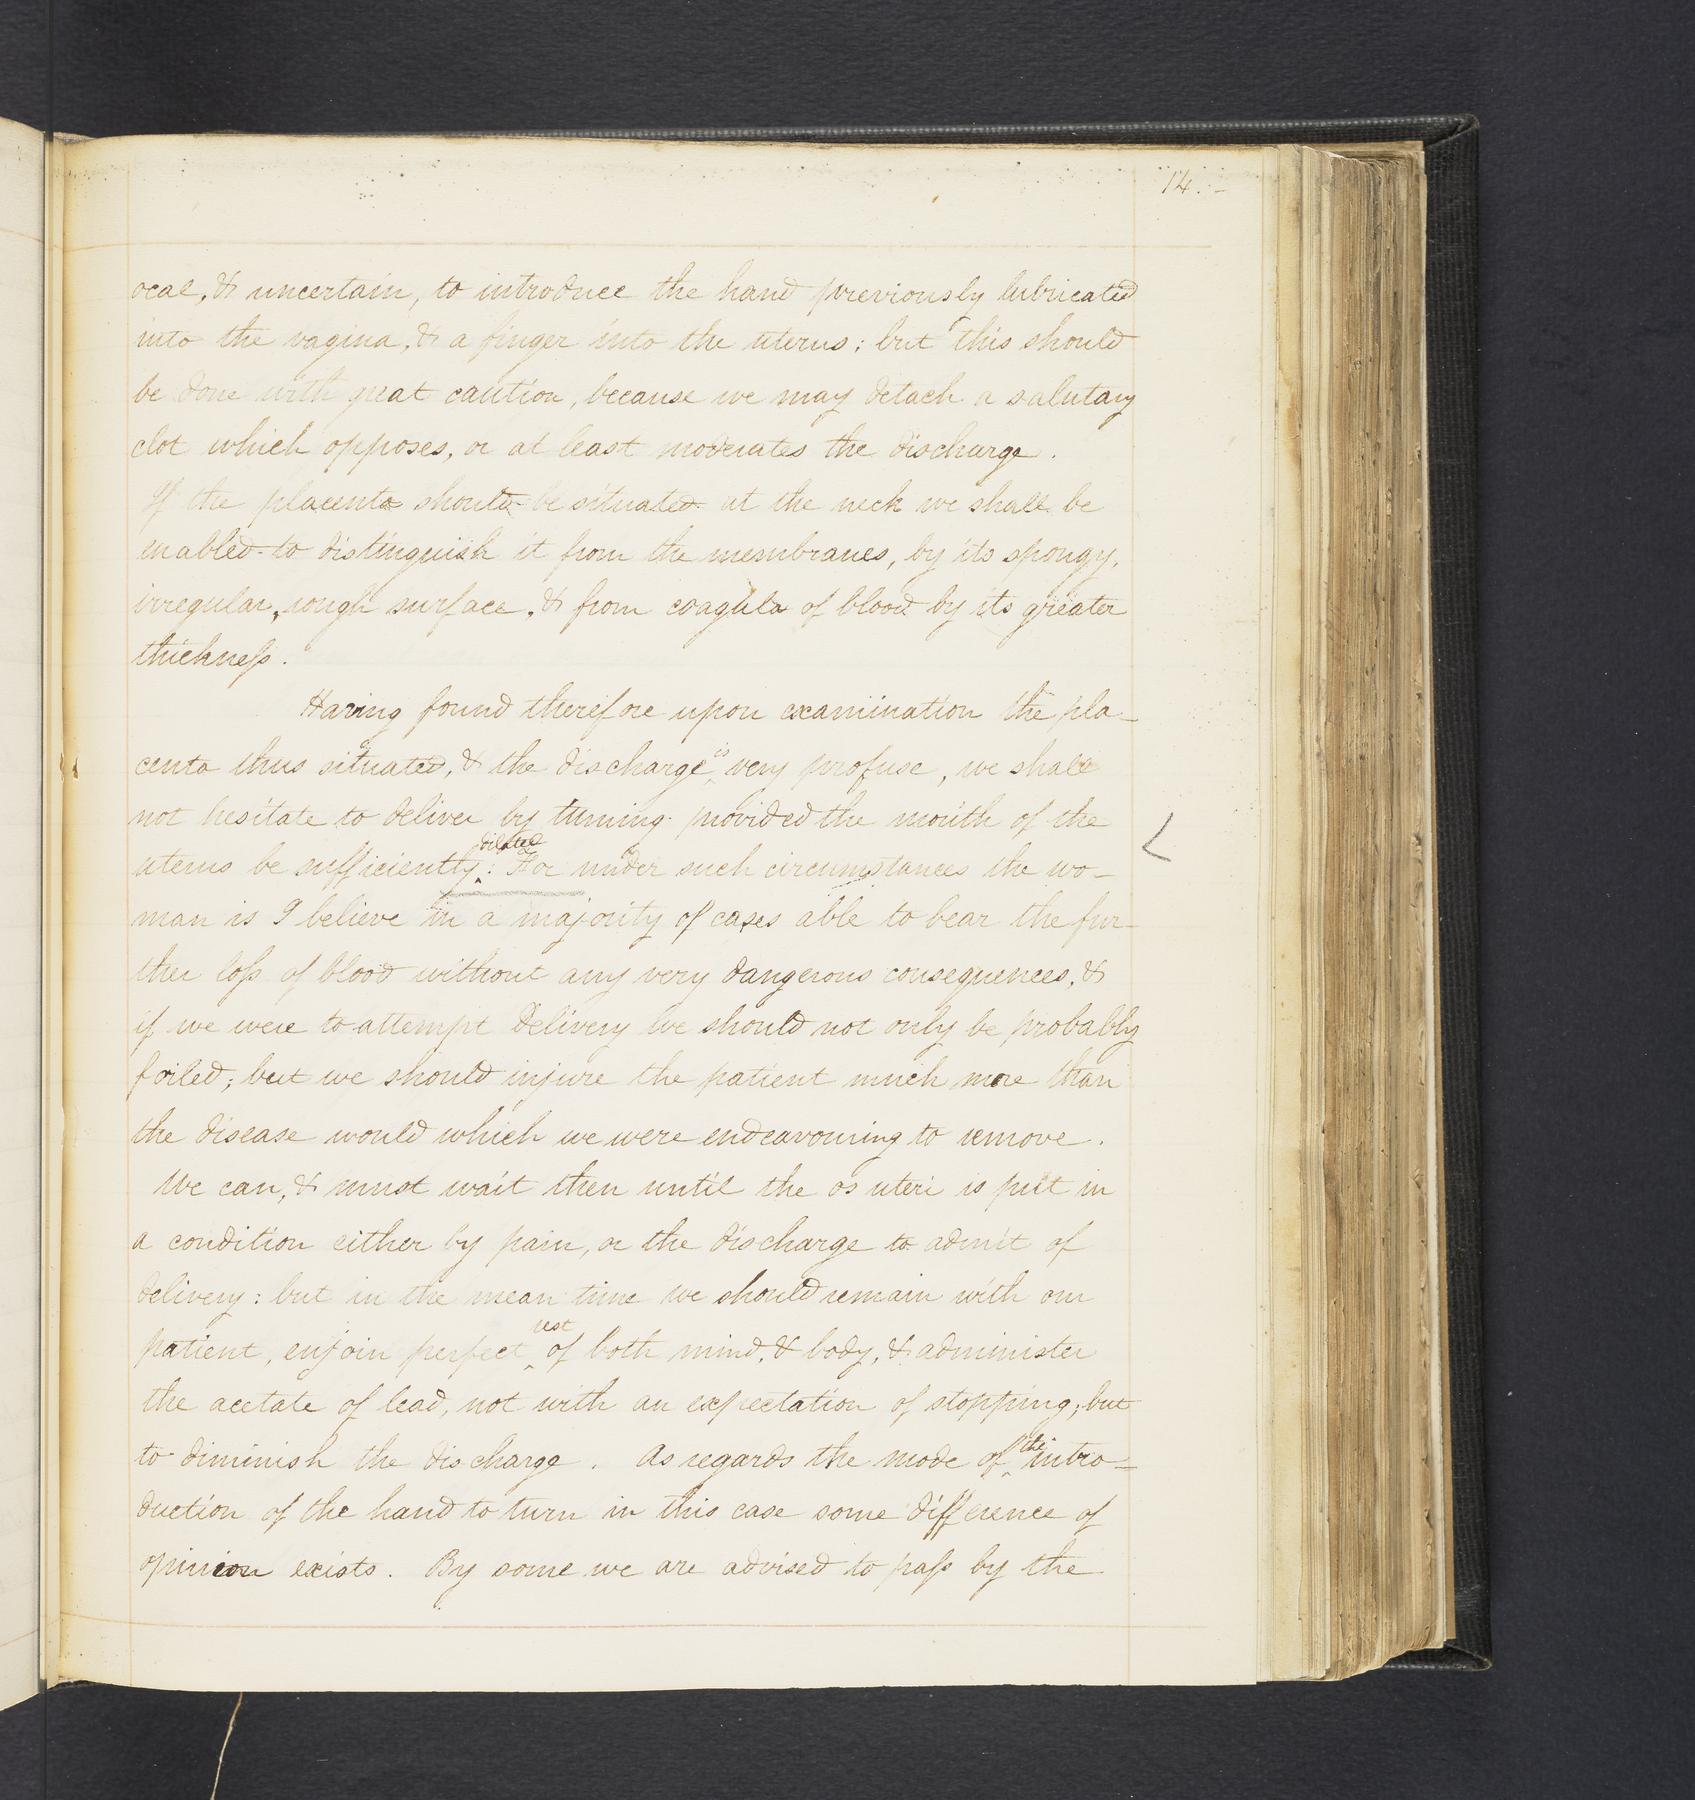 14.-
ocal, & uncertain, to introduce the hand previously lubricated
into the vagina, & a finger into the uterus; but this should
be done with great caution, because we may detach a salutary
clot which opposes, or at least moderates the discharge.
If the placenta should be situated at the neck we shall be
enabled to distinguish it from the membranes, by its spongy,
irregular, rough surface, & from coagula of blood by its greater
thickness.
Having found therefore upon examination the pla-
centa thus situated, & the discharge is very profuse, we shall
not hesitate to deliver by turning provided the mouth of the
uterus be sufficiently dilated: For under such circumstances the wo-
man is I believe in a majority of cases able to bear the fur-
ther loss of blood without any very dangerous consequences, &
if we were to attempt Delivery we should not only be probably
foiled; but we should injure the patient much more than
the disease would which we were endeavouring to remove.
We can, & must wait then until the os uteri is put in
a condition either by pain, or the discharge to admit of
delivery: but in the mean time we should remain with our
patient, enjoin perfect rest of both mind, & body, & administer
the acetate of lead, not with an expectation of stopping; but
to diminish the discharge. As regards the mode of the intro=
duction of the hand to turn in this case some difference of
opinion exists. By some we are advised to pass by the